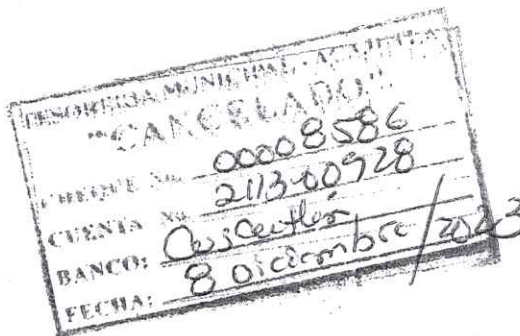 TESORERIA MUNICIPAL - ACAJUTLA
"CANCELADO"
CHEQUE No. 00008586
CUENTA No. 2113-00928
BANCO: Cuscatlán
FECHA: 8 Diciembre/2023